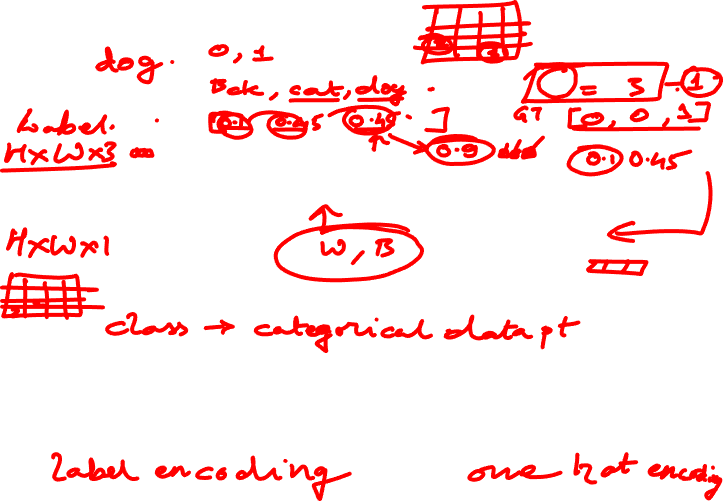 dog. 0, 1
Bck, cat, dog.
= 3 - 1
Label. [0.1 0.45 0.45. ] GT [0, 0, 1]
H×W×3 0.9 0.1 0.45
H×W×1 W, B
class → categorical data pt
Label encoding one hot encoding